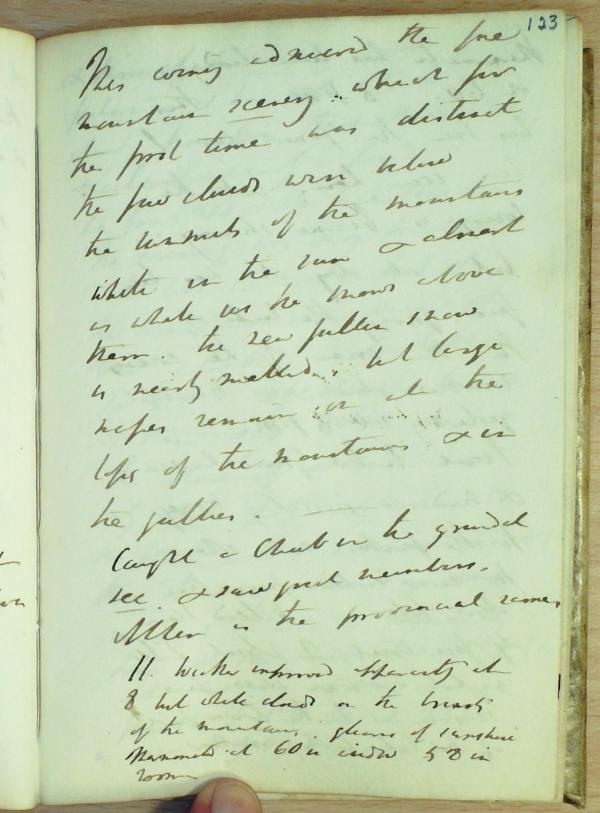 123
This evening admired the fine
mountain scenery which for
the first time was distinct
the few clouds were below
the summits of the mountains
white in the sun & almost
as white as the snows above
them. the new fallen snow
is nearly melted, but large
masses remain on all the
tops of the mountains & in
the gullies.
Caught a Chub in the grundel
see & saw great numbers.
is the provincial name
11. weather improved apparently at
8 but white clouds on the breasts
of the mountains. gleams of sunshine
Thermometer at 60 in window 58 in
room